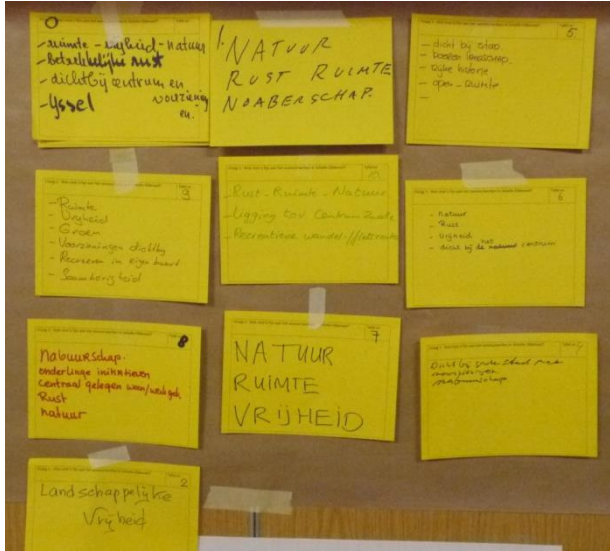 0
- ruimte - vrijheid - natuur
- Betrekkelijke rust
- dichtbij centrum en voorzieningen.
- Yssel
1.
NATUUR
RUST RUIMTE
NOABERSCHAP.
5
- dicht bij stad
- landschap.
- rijke historie
- open - ruimte
-
3
- Ruimte
- Vrijheid
- Groen
- Voorzieningen dichtbij
- Recreëren in eigen buurt
- Saamhorigheid
- Rust - Ruimte - Natuur
- Ligging tov Centrum Zutphen
- Recreatieve wandel-/fietsroute
6
- natuur
- Rust
- vrijheid
- dicht bij het centrum
8
Nabuurschap.
onderlinge initiatieven
Centraal gelegen woon/werk geb.
Rust
natuur
7
NATUUR
RUIMTE
VRIJHEID
Dicht bij stad met
voorzieningen
nabuurschap
2
Landschappelijke
Vrijheid